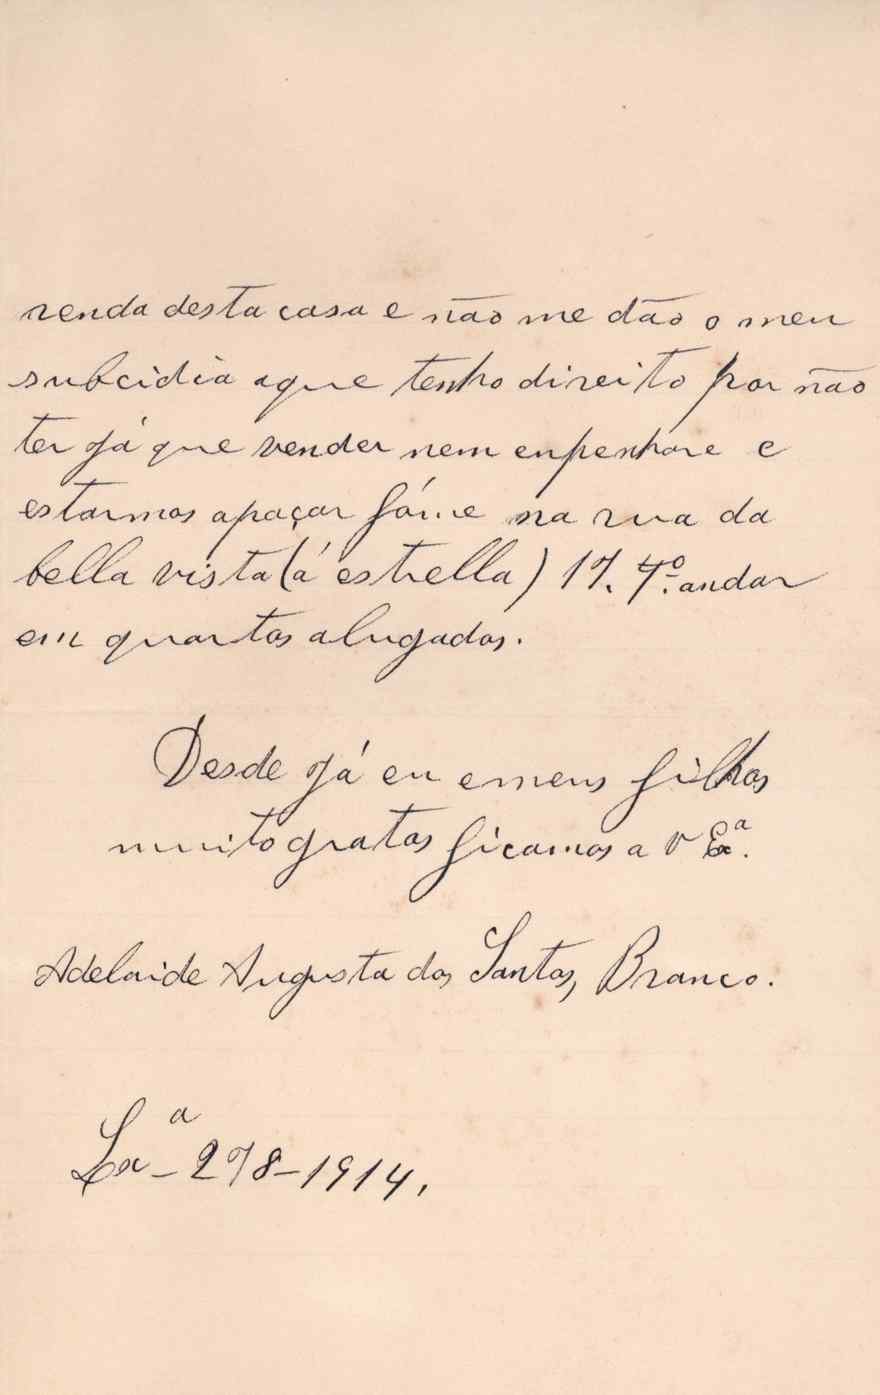 renda desta casa e não me dão o meu
subcidia aque tenho direito por não
ter já que vender nem enpenhare e
estarmos apaçar fóme na rua da
bella vista (á estrella) 17. 4º. andar
em quartos alugados.
Desde já eu emeus filhos
muito gratos ficamos a v Exª.
Adelaide Augusta dos Santos, Branco.
Lxª - 278-1914,